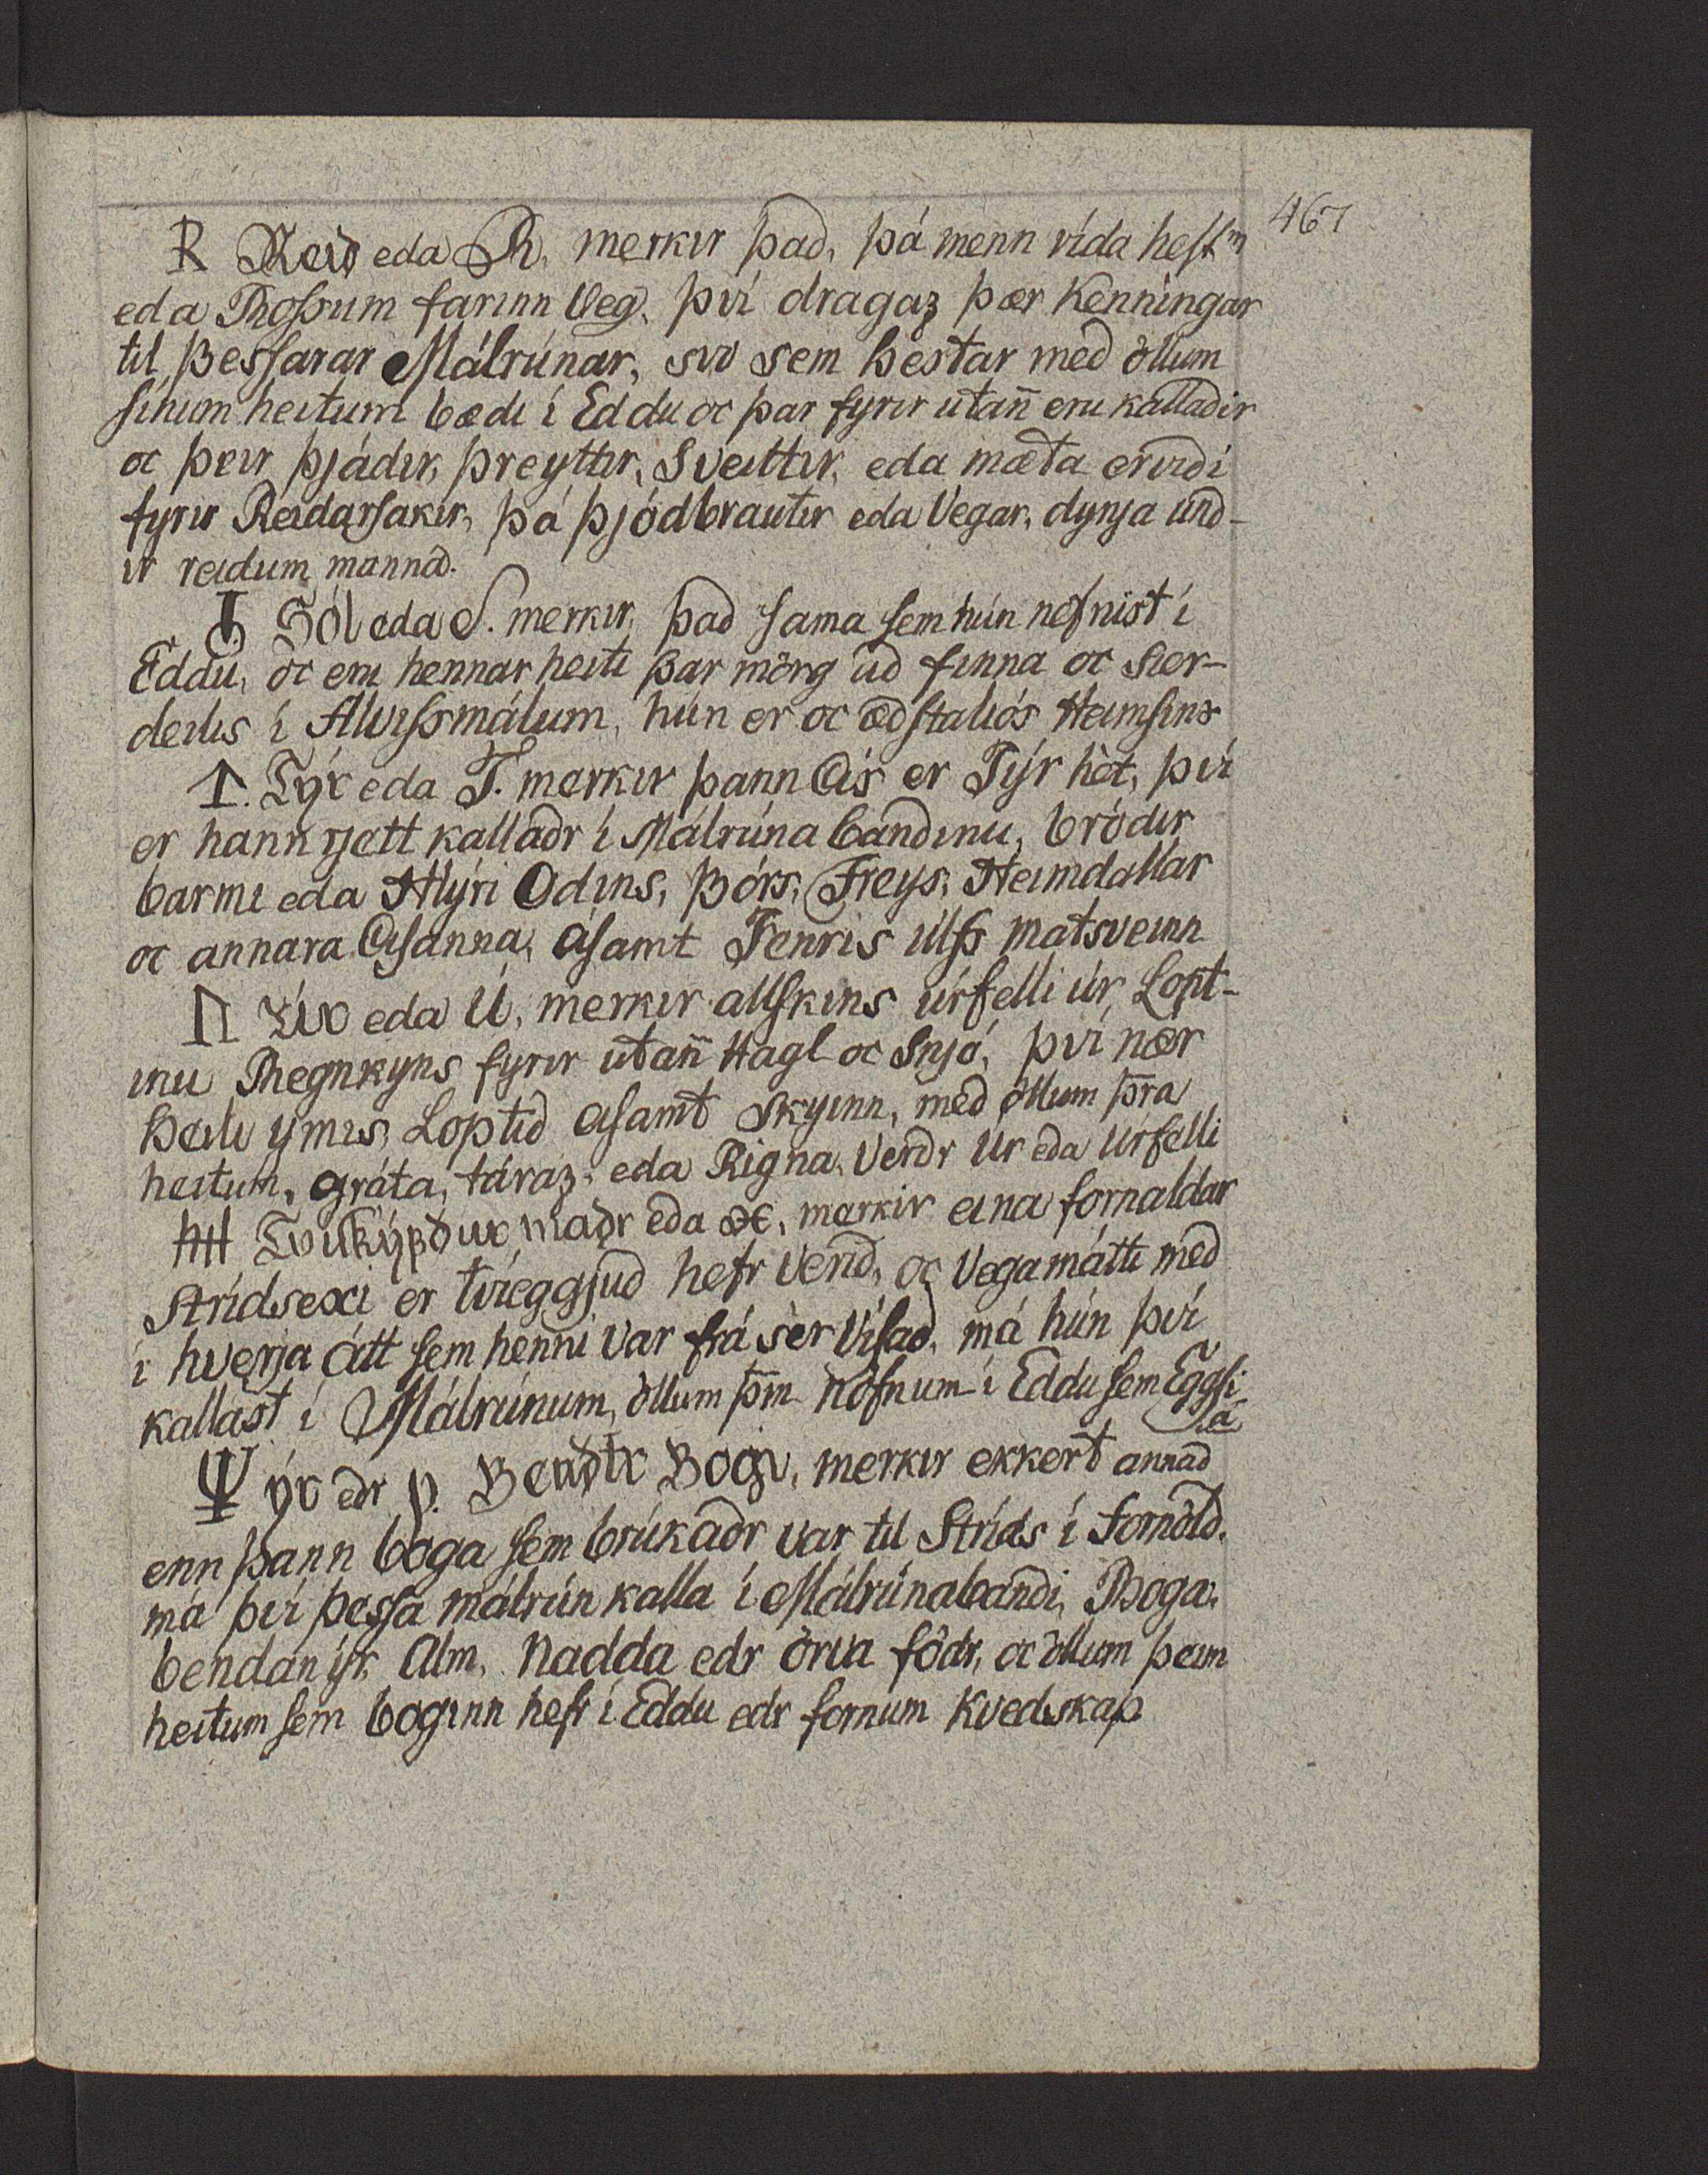 467
ᚱ Reid eda R. merkir þad, þá menn rída hestm
eda Hrossum farinn Veg. því dragaz þær Kenningar
til þessarar Málrúnar, svo sem hestar med öllum
sínum heitum bædi í Eddu oc þar fyrir utan̄ eru kalladir
oc þeir þjádir, þreyttir, Sveittir, eda mæta ervidi
fyrir Reidarsakir, þá þjódbrautir eda Vegar, dynja und-
ir reidum manna.
Sól eda S. merkir, þad sama sem hún nefnist í
Eddu, oc eru hennar heiti þar mörg ad finna oc sier-
deilis í Alvissmálum, hún er oc ædsta liós Heimsins
ᛏ. Týr eda T. merkir þann Ás er Týr hèt, því
er hann rjett kalladr í Málrúna bandinu, bródir
barmi eda Hlýri Odins, Þórs, Freys, Heimdallar
oc annara Asanna, ásamt Fenris úlfs matsveinn
ᚢ Úr eda Ú, merkir allskins úrfelli úr Lopt-
inu Regnkyns fyrir utan̄ Hagl oc Snjó, því nær
heili ymis, Loptid asamt Skyinn, med öllum þra
heitum, gráta, táraz, eda Rigna, Verdr úr eda Urfelli
maðr eda æ, merkir eina fornaldar
Strídsexi er tvieggjud hefr verid, oc Vega mátti med
í hverja átt sem henni var frá sèr Vísad, má hún því
kallast í Málrúnum, öllum þm nöfnum í Eddu sem Eggsi
la
ýr edr y. Bendtr Bogi, merkir ekkert annad
enn þann boga sem brúkadr var til Stríds í fornöld.
má því þessa málrún kalla í Málrúnabandi, Boga,
bendan ýr, Alm, Nadda edr örva fódr, oc öllum þeim
heitum sem boginn hefr í Eddu edr fornum Kvedskap